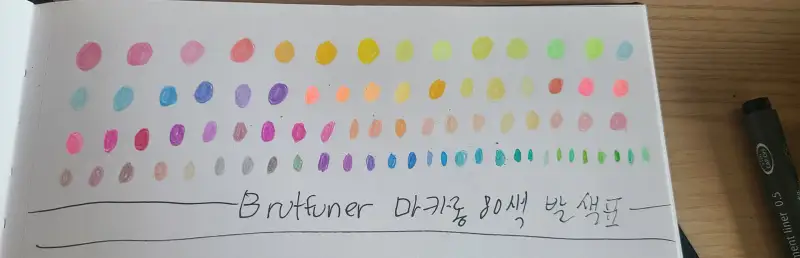 Brutfuner 마카롱 80색 발색표
ment liner 0.5